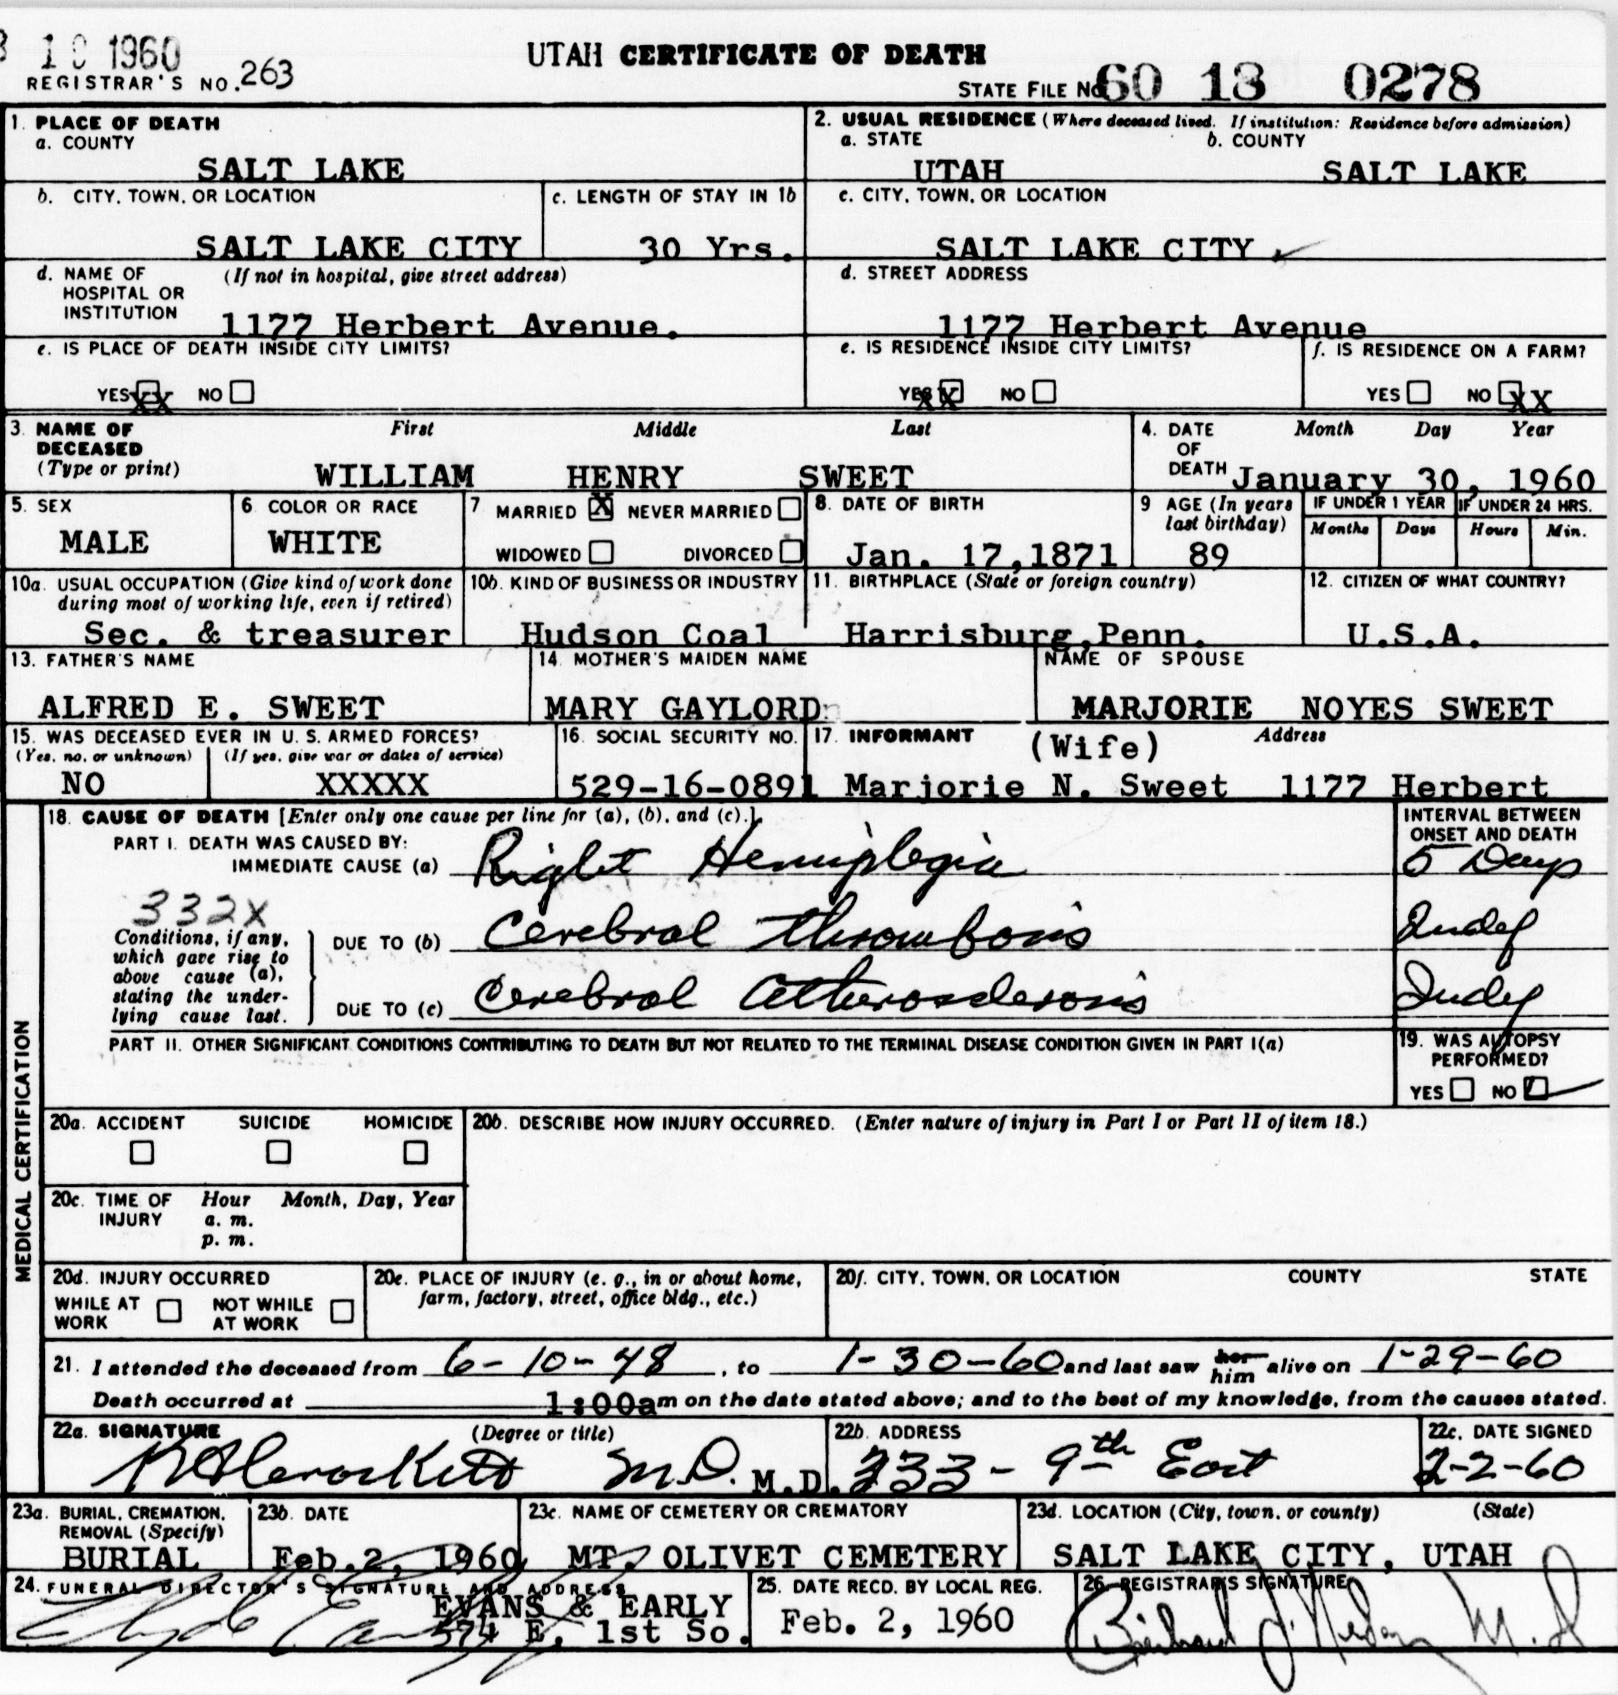 10 1960
UTAH CERTIFICATE OF DEATH
REGISTRAR'S NO. 263
STATE FILE NO. 60 13 0278
1. PLACE OF DEATH
a. COUNTY
SALT LAKE
2. USUAL RESIDENCE (Where deceased lived. If institution: Residence before admission)
a. STATE b. COUNTY
UTAH SALT LAKE
b. CITY, TOWN, OR LOCATION
SALT LAKE CITY
c. LENGTH OF STAY IN 1b
30 Yrs.
c. CITY, TOWN, OR LOCATION
SALT LAKE CITY
d. NAME OF (If not in hospital, give street address)
HOSPITAL OR
INSTITUTION
1177 Herbert Avenue.
d. STREET ADDRESS
1177 Herbert Avenue
e. IS PLACE OF DEATH INSIDE CITY LIMITS?
YES XX NO
e. IS RESIDENCE INSIDE CITY LIMITS?
YES XX NO
f. IS RESIDENCE ON A FARM?
YES NO XX
3. NAME OF DECEASED (Type or print)
First Middle Last
WILLIAM HENRY SWEET
4. DATE OF DEATH
Month Day Year
January 30, 1960
5. SEX
MALE
6. COLOR OR RACE
WHITE
7 MARRIED X NEVER MARRIED
WIDOWED DIVORCED
8. DATE OF BIRTH
Jan. 17,1871
9 AGE (In years last birthday)
89
IF UNDER 1 YEAR
Months Days
IF UNDER 24 HRS.
Hours Min.
10a. USUAL OCCUPATION (Give kind of work done
during most of working life, even if retired)
Sec. & treasurer
10b. KIND OF BUSINESS OR INDUSTRY
Hudson Coal
11. BIRTHPLACE (State or foreign country)
Harrisburg,Penn.
12. CITIZEN OF WHAT COUNTRY?
U.S.A.
13. FATHER'S NAME
ALFRED E. SWEET
14. MOTHER'S MAIDEN NAME
MARY GAYLORD
NAME OF SPOUSE
MARJORIE NOYES SWEET
15. WAS DECEASED EVER IN U. S. ARMED FORCES?
(Yes, no, or unknown) (If yes, give war or dates of service)
NO XXXXX
16. SOCIAL SECURITY NO.
529-16-0891
17. INFORMANT (Wife) Address
Marjorie N. Sweet 1177 Herbert
MEDICAL CERTIFICATION
18. CAUSE OF DEATH [Enter only one cause per line for (a), (b), and (c).]
INTERVAL BETWEEN
ONSET AND DEATH
PART I. DEATH WAS CAUSED BY:
IMMEDIATE CAUSE (a) Right Hemiplegia 5 Days
332X
Conditions, if any,
which gave rise to
above cause (a),
stating the under-
lying cause last.
DUE TO (b) Cerebral Thrombosis Indef
DUE TO (c) Cerebral Atherosclerosis Indef
PART II. OTHER SIGNIFICANT CONDITIONS CONTRIBUTING TO DEATH BUT NOT RELATED TO THE TERMINAL DISEASE CONDITION GIVEN IN PART I(a)
19. WAS AUTOPSY
PERFORMED?
YES NO
20a. ACCIDENT SUICIDE HOMICIDE
20b. DESCRIBE HOW INJURY OCCURRED. (Enter nature of injury in Part I or Part II of item 18.)
20c. TIME OF INJURY
Hour Month, Day, Year
a. m.
p. m.
20d. INJURY OCCURRED
WHILE AT WORK NOT WHILE AT WORK
20e. PLACE OF INJURY (e. g., in or about home,
farm, factory, street, office bldg., etc.)
20f. CITY, TOWN, OR LOCATION COUNTY STATE
21. I attended the deceased from 6-10-48, to 1-30-60 and last saw her him alive on 1-29-60
Death occurred at 1:00am on the date stated above; and to the best of my knowledge, from the causes stated.
22a. SIGNATURE (Degree or title)
Crockett M.D. M.D.
22b. ADDRESS
233 - 9th East
22c. DATE SIGNED
2-2-60
23a. BURIAL, CREMATION,
REMOVAL (Specify)
BURIAL
23b. DATE
Feb.2, 1960
23c. NAME OF CEMETERY OR CREMATORY
MT. OLIVET CEMETERY
23d. LOCATION (City, town, or county) (State)
SALT LAKE CITY, UTAH
24. FUNERAL DIRECTOR'S SIGNATURE AND ADDRESS
EVANS & EARLY
574 E. 1st So.
25. DATE RECD. BY LOCAL REG.
Feb. 2, 1960
26. REGISTRAR'S SIGNATURE
M.D.